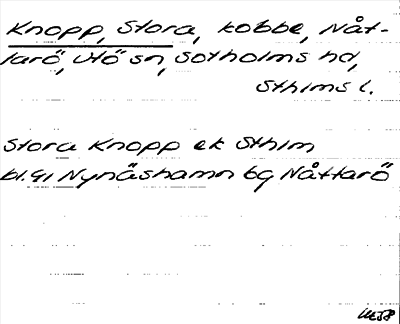 Knopp, Stora, kobbe, Nåt-
tarö, Utö sn, Sotholms hd,
Sthlms l.
Stora Knopp ek Sthlm
bl.91 Nynäshamn bg Nåttarö